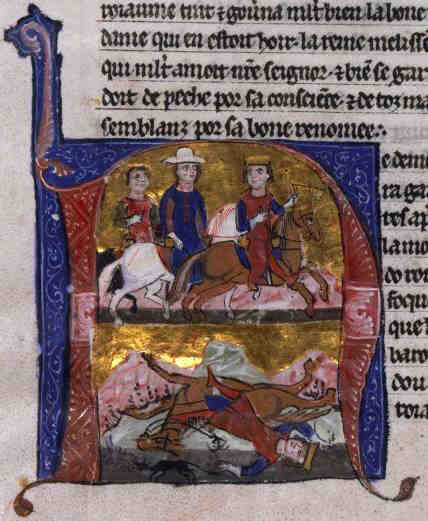 roiaume tint ⁊ gouĩna ml̃t bien la bone
dame qui en estoit hoir· la reine melissẽ
qui ml̃t amoit nr̃e seignor· ⁊ biẽ se gar
doit de peche por sa consciẽce· ⁊ de toz ma
semblanz por sa bone renomee·:
N
e demo
ra gai
tres ap
la mo
do roi
foque
que l
baro
dou
roia